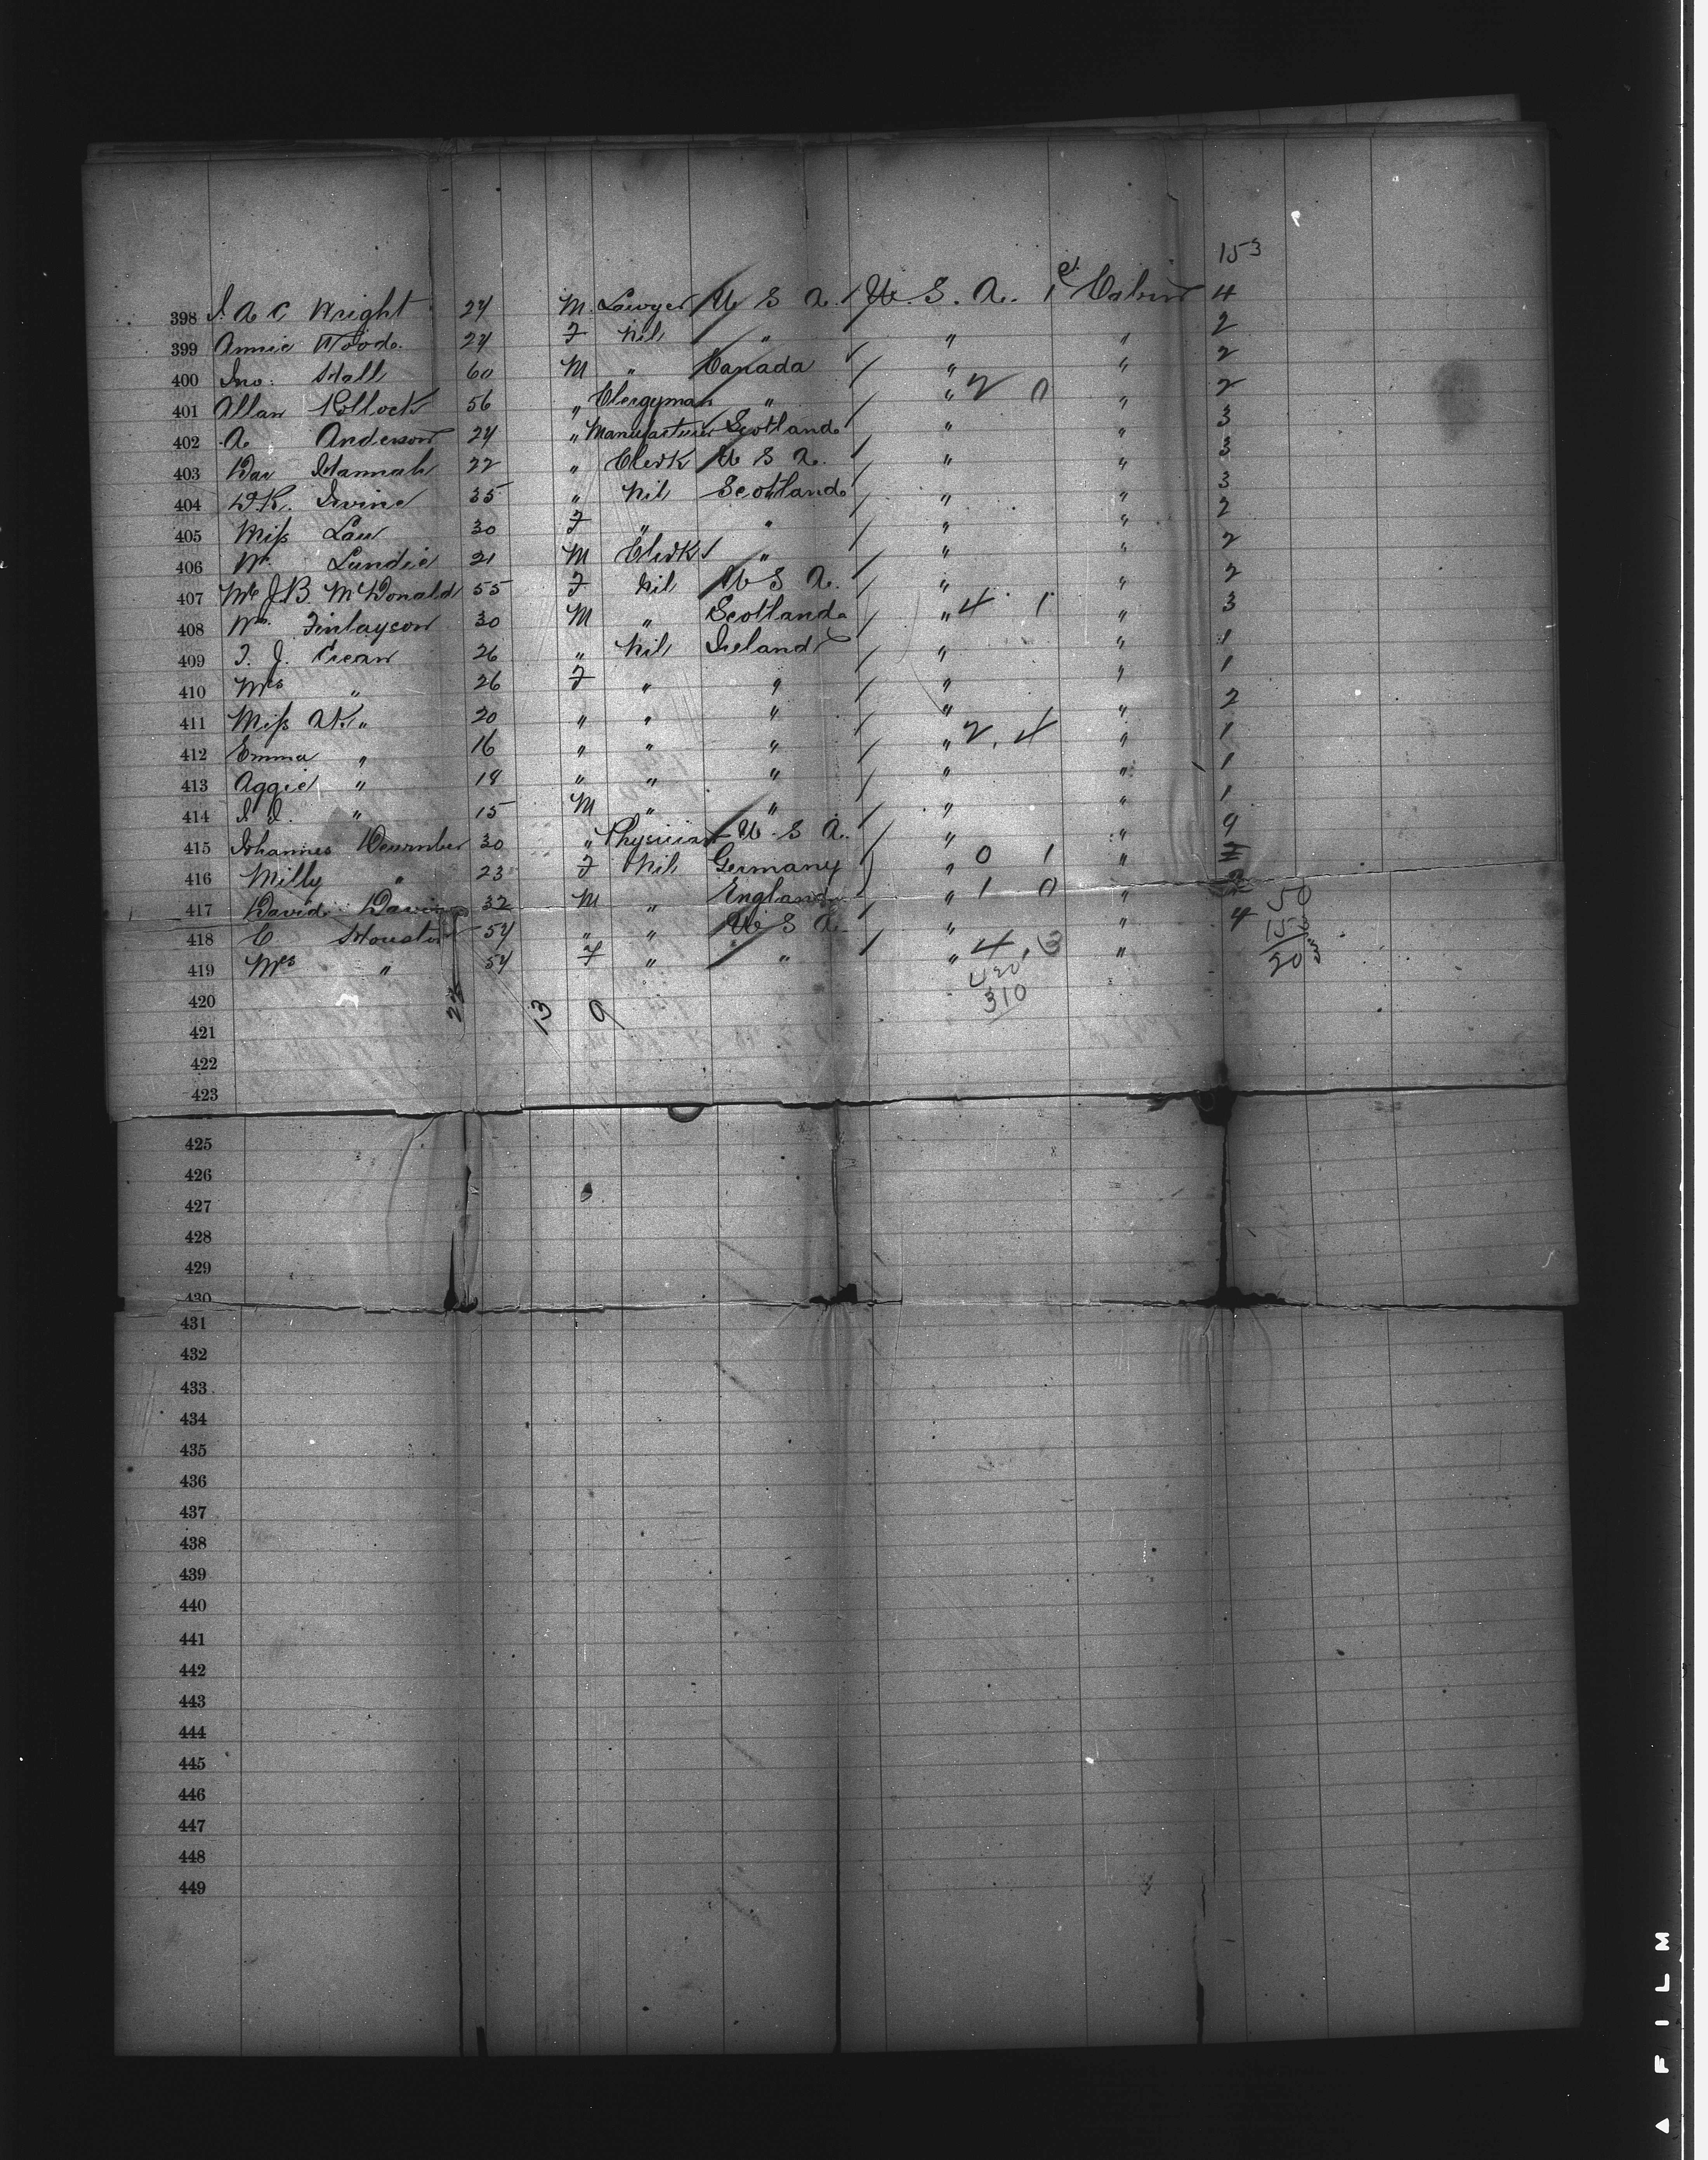 153
398 J. A C Wright 24 M. Lawyer U S A. / U. S. A. 1st Cabin 4
399 Annie Wood 24 F Nil " " " 2
400 Jno. Hall 60 M " Canada / " " 2
401 Allan Pollock 56 " Clergyman " / " 2 0 " 2
402 A Anderson 24 " Manufacturer Scotland / " " 3
403 Hannah 22 " Clerk U S A. / " " 3
404 D. K. Irvine 35 " Nil Scotland / " " 3
405 Miss Law 30 F " " / " " 2
406 Wm Lundie 21 M Clerk " / " " 2
407 J B McDonald 55 F Nil U S A. / " " 2
408 Wm Finlayson 30 M " Scotland / " 4 1 " 3
409 T. J. Crean 26 " Nil Ireland / " " 1
410 Mrs " 26 F " " / " " 1
411 Miss " 20 " " " / " " 2
412 Emma " 16 " " " / " 2, 4 " 1
413 Aggie " 18 " " " / " " 1
414 " 15 M " " / " " 1
415 Johannes 30 " Physician U. S A. / " " 9
416 Milly " 23 F Nil Germany ) " 0 1 "
417 David 32 M " England / " 1 0 "
418 C Houston 54 " " U S A " " 4
419 Mrs " 54 F " " / " 4, 3 "
420 310
421 22 13 9
422
423
425
426
427
428
429
430
431
432
433
434
435
436
437
438
439
440
441
442
443
444
445
446
447
448
449
FILM